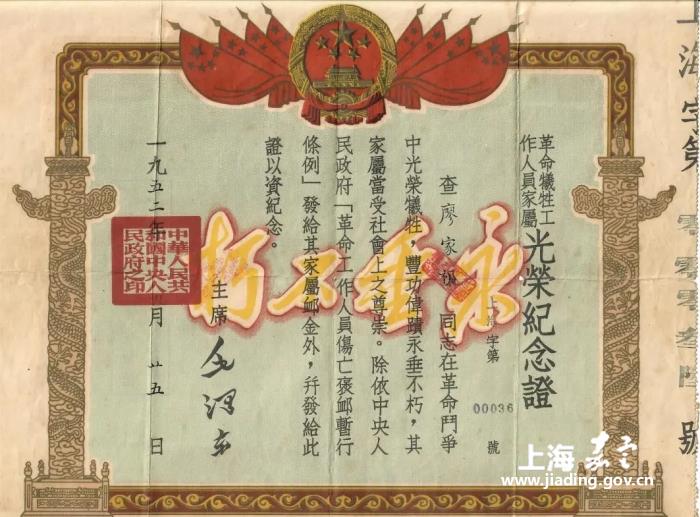 革命犧牲工作人員家屬光榮紀念證
上海字第 00036 號
查廖家 同志在革命鬥爭
中光榮犧牲，豐功偉蹟永垂不朽，其
家屬當受社會上之尊崇。除依中央人
民政府「革命工作人員傷亡褒邮暫行
條例」發給其家屬邮金外，幷發給此
證以資紀念。
主席 毛澤東
一九五二年 月 廿五 日
中華人民共和國中央人民政府之印
永垂不朽
上海字第零零零叁 號
上海 嘉定
www.jiading.gov.cn